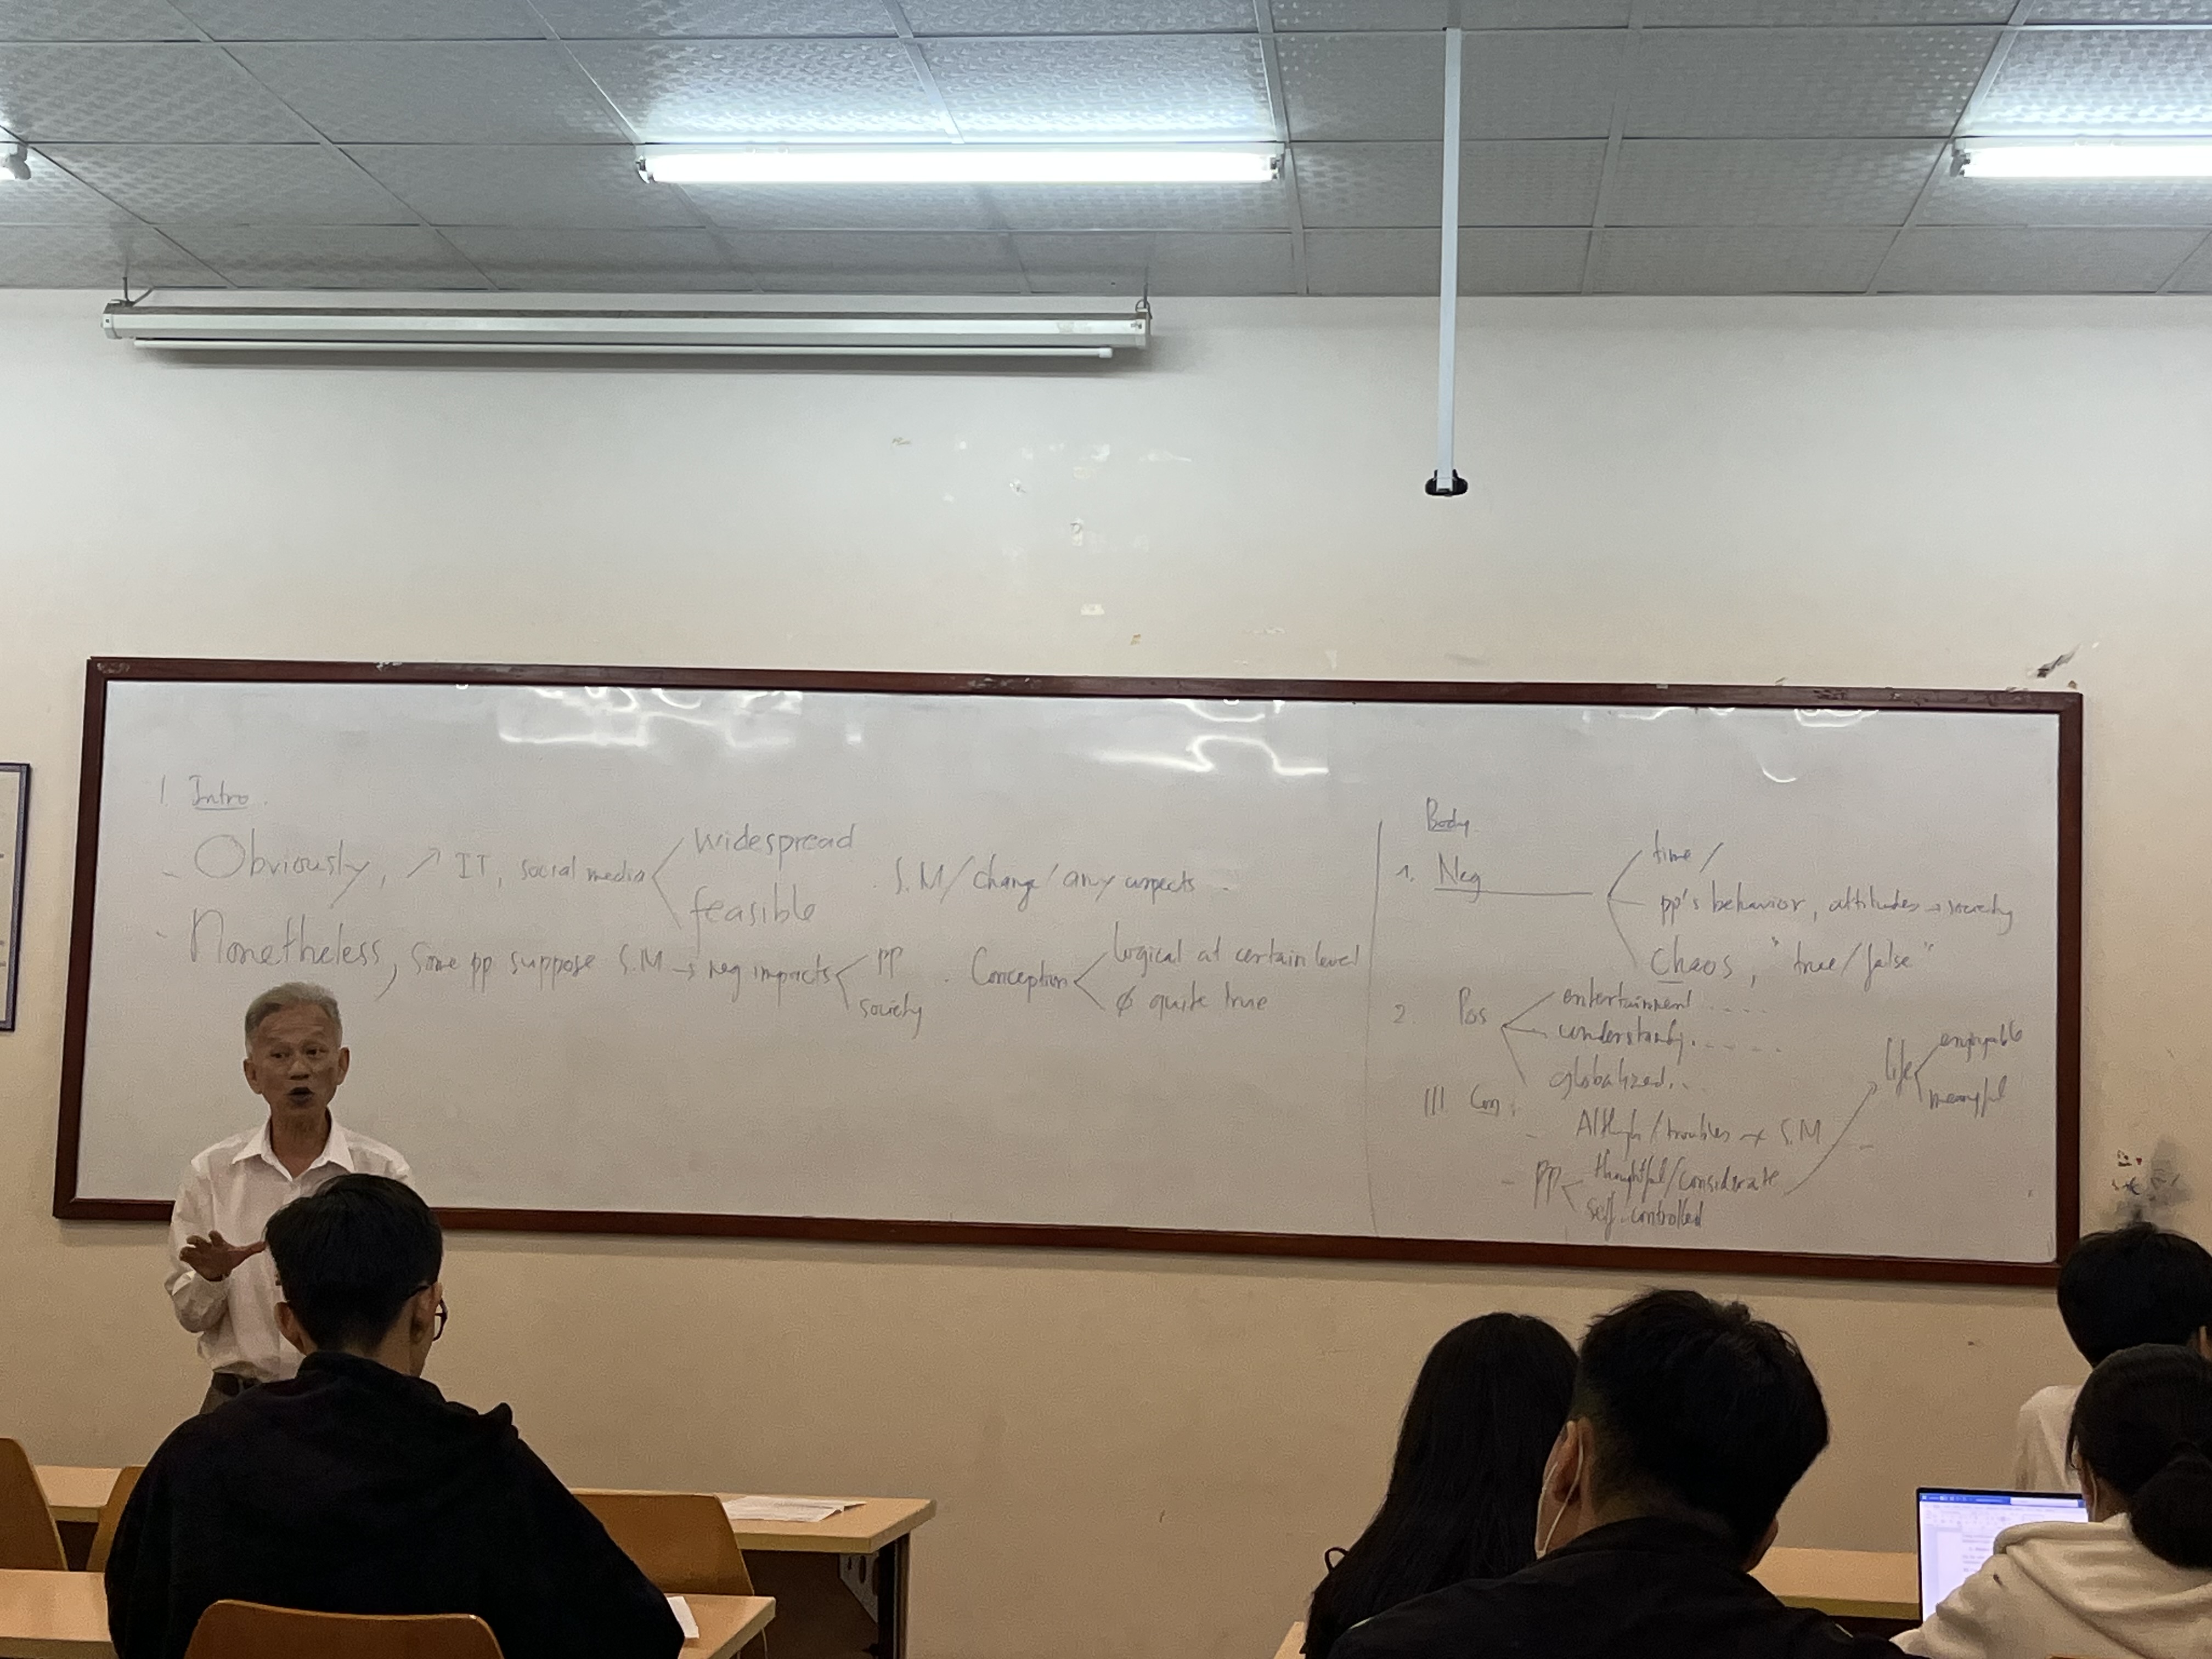 I Intro.
- Obviously, ↗ IT, social media < widespread
feasible
. S.M / change / any aspects.
- Nonetheless, Some pp suppose S.M → neg impacts < pp
society
. Conception < logical at certain level
ϕ quite true
Body
1. Neg
time /
pp's behavior, attitudes → society
Chaos, "true/false"
2. Pos
entertainment ....
understandg. ....
globalized...
III Con.
- Although / troubles → S.M --
- pp < thoughtful/considerate
self-controlled
life < enjoyable
meangful